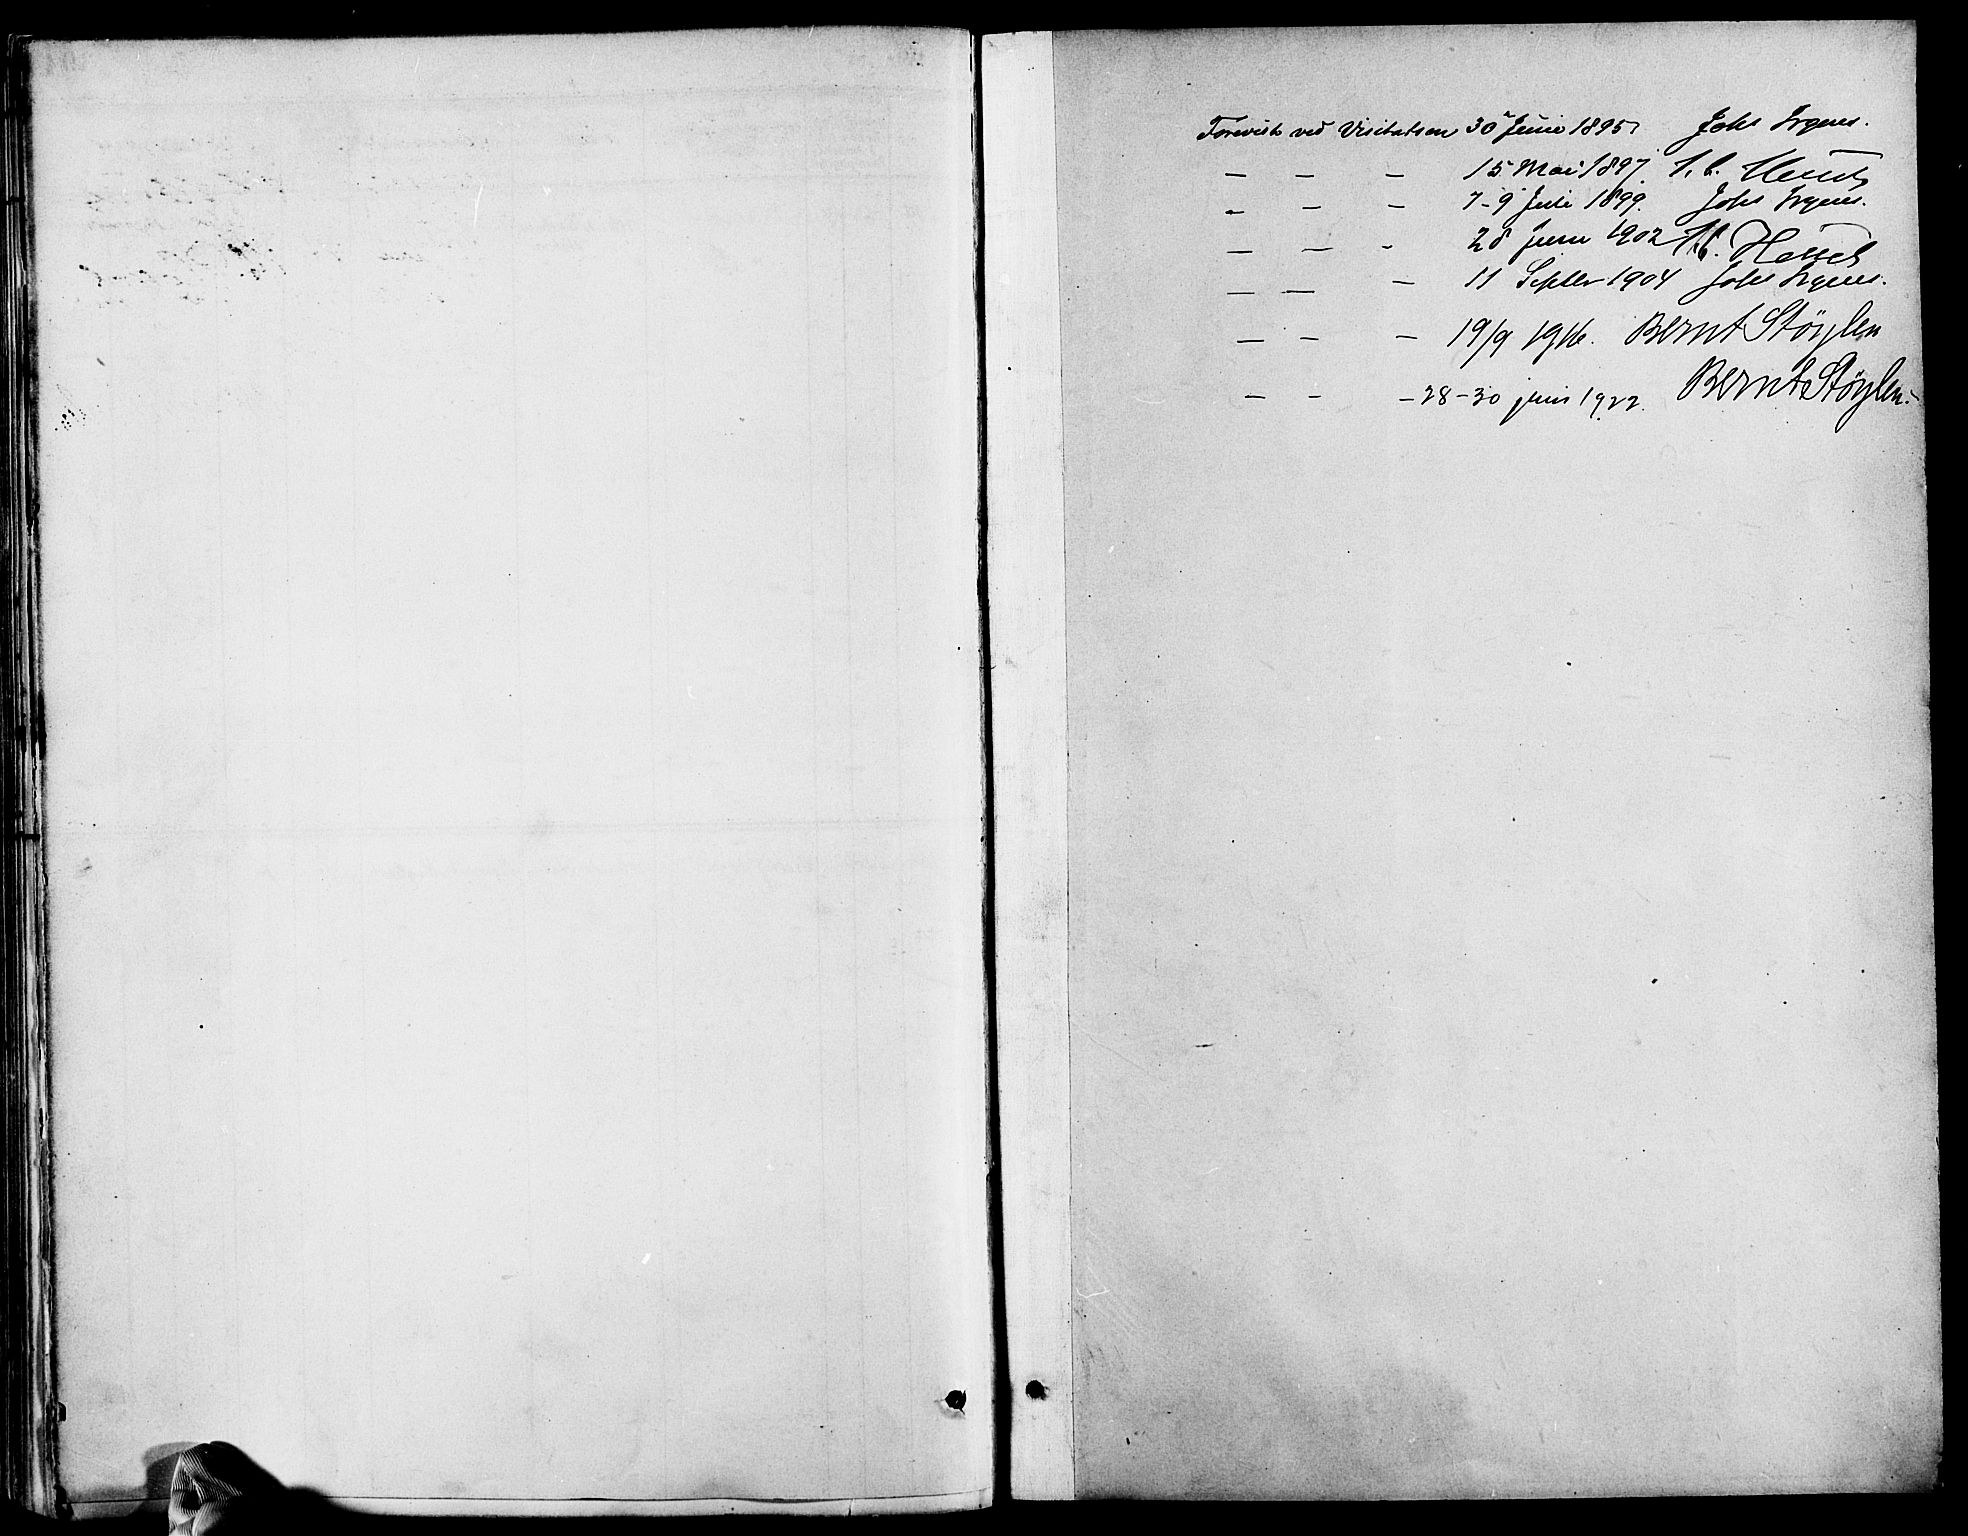 Forevist ved Visitatsen 30 Juni 1895 Johs Irgens.
— — — 15 Mai 1897. J. C. Heuch
— — — 7-9 Juli 1899. Johs Irgens.
— — — 28 Juni 1902 J. C. Heuch
— — — 11 Septbr 1904 Johs Irgens.
— — — 19/9 1916. Bernt Støylen
— — — 28-30 juni 1922. Bernt Støylen.